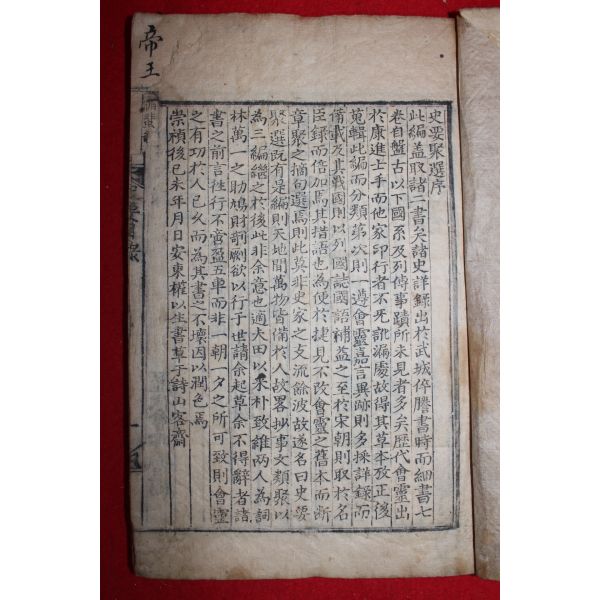 史要聚選序
此編盖取諸二書矣諸史詳錄出於武城停謄書時而細書七
卷自盤古以下國系及列傳事蹟所未見者多矣歷代會靈出
於康進士手而他家印行者不旡訛漏處故得其草本攷正後
蒐輯此編而分類第次則一遵會靈嘉言異跡則多採詳錄而
備載及其戰國則以列國誌國語補益之至於宋朝則取於名
臣錄而倍加焉其措語也為便於捷見不改會靈之舊本而斷
章聚之摘句選焉則此莫非史家之支流餘波故遂名曰史要
聚選既有是編則天地間萬物皆備於人故畧抄事文類聚以
為三編繼之於後此非余意也適大田以來朴致維兩人為詞
林萬一之助鳩財剞劂欲以行于世請余起草余不得辭者諸
書之前言往行不啻盈五車而非一朝一夕之所可致則會靈
之有功於人已久而為其書之不壞因以潤色焉
崇禎後己未年月日安東權以生書草于詩山客齋
帝王